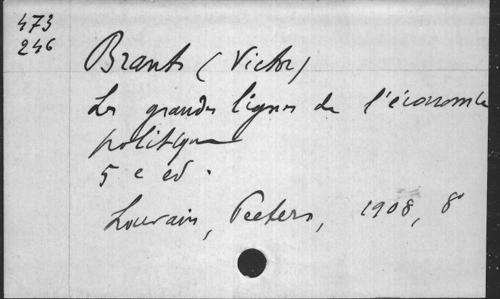 473
246
Brants (Victor)
Les grandes lignes de l'économie
politique
5e ed.
Louvain, Peeters, 1908, 8°